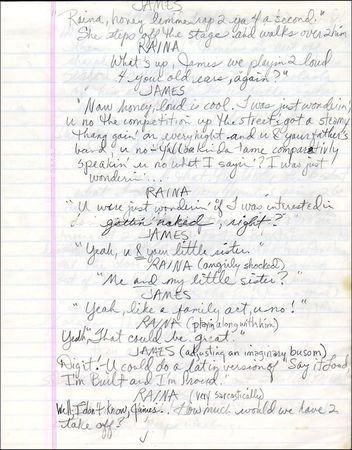 JAMES
"Raina, honey lemme rap 2 ya 4 a second."
She steps off the stage and walks over 2 him
RAINA
"What's up, James we playin 2 loud
4 your old ears, again?"
JAMES
"Naw honey, loud is cool. I was just wonderin',
u no the competition up the street got a steamy
thang goin' on every night and u & your father's
band u no - y'all bakinda tame comparatively
speakin' u no what I sayin'? I was just
wonderin'...
RAINA
"U were just wonderin' if I was interested in
gettin' naked, right?
JAMES
"Yeah, u & your little sister."
RAINA (angrily shocked)
"Me and my little sister?"
JAMES
"Yeah, like a family act, u no!"
RAINA (playin along with him)
Yeah, "That could be great."
JAMES (adjusting an imaginary busom)
Digit! U could do a latin version of "Say it Loud,
I'm Built and I'm Proud."
RAINA (very sarcastically)
Well I don't know, James... How much would we have 2
take off?